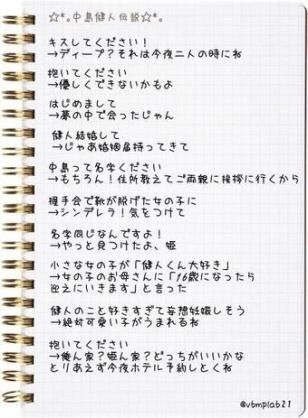 ☆*。中島健人伝説☆*。
キスしてください！
→ディープ？それは今夜二人の時にね
抱いてください
→優しくできないかもよ
はじめまして
→夢の中で会ったじゃん
健人結婚して
→じゃあ婚姻届持ってきて
中島って名字ください
→もちろん！住所教えてご両親に挨拶に行くから
握手会で靴が脱げた女の子に
→シンデレラ！気をつけて
名字同じなんですよ！
→やっと見つけたよ、姫
小さな女の子が「健人くん大好き」
→女の子のお母さんに「16歳になったら
迎えにいきます」と言った
健人のこと好きすぎて妄想妊娠しそう
→絶対可愛い子がうまれるね
抱いてください
→俺ん家？姫ん家？どっちがいいかな
とりあえず今夜ホテル予約しとくね
@vbmplab21